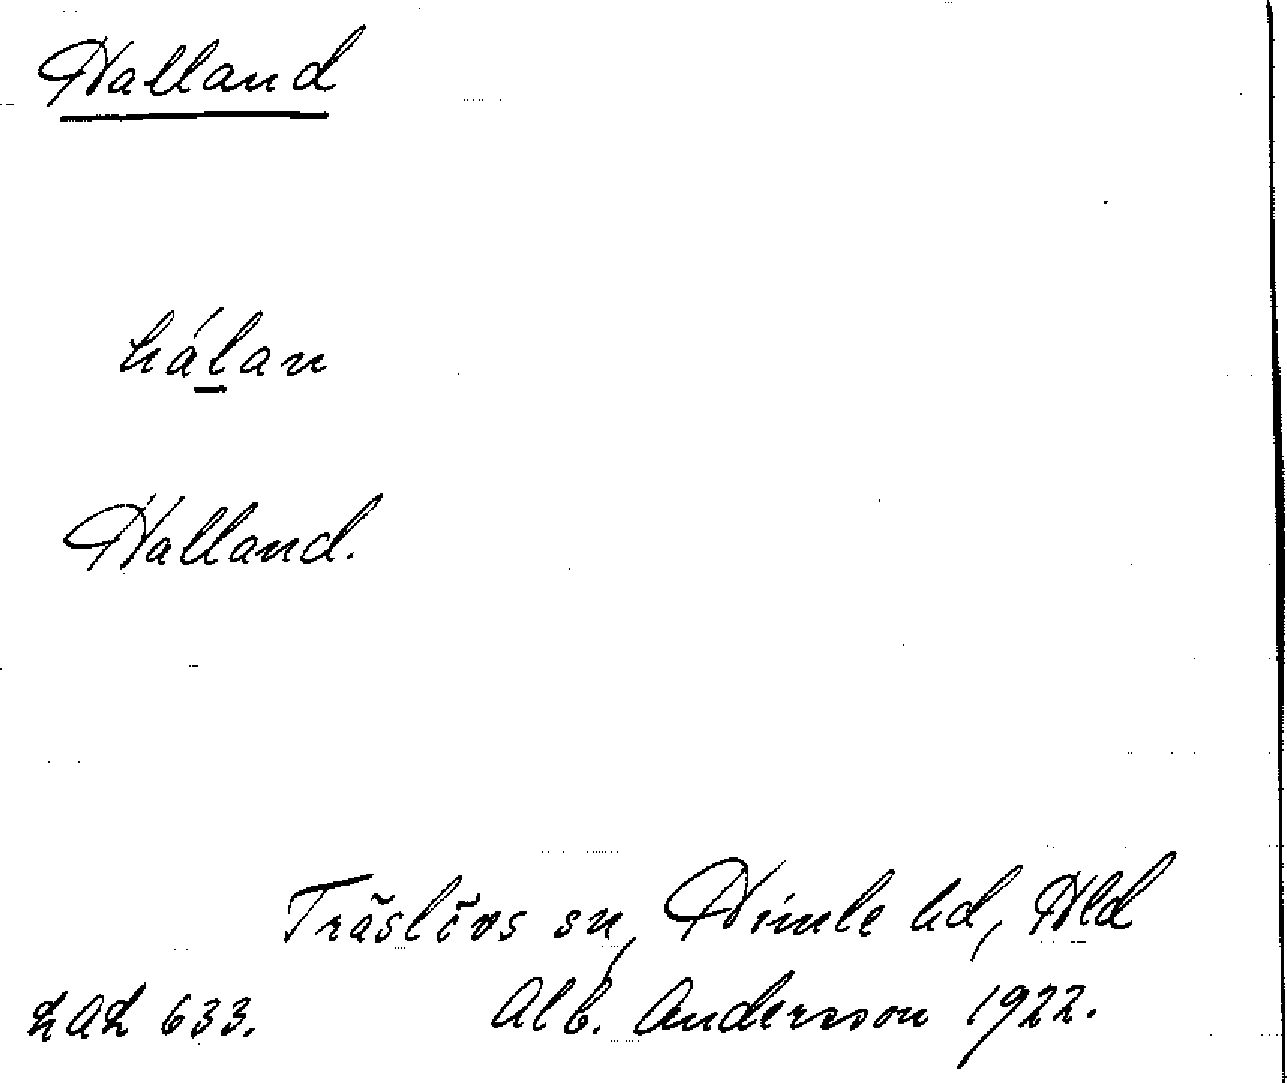 Halland
hálan
Halland.
Träslövs sn, Himle hd, Hld
LAL 633. Alb. Andersson 1922.